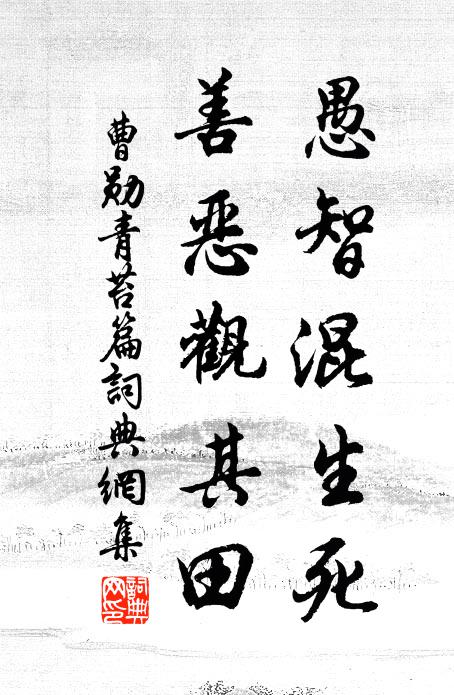 愚智混生死
善惡觀其田
曹勛青苔篇詞典網集
詞典網印